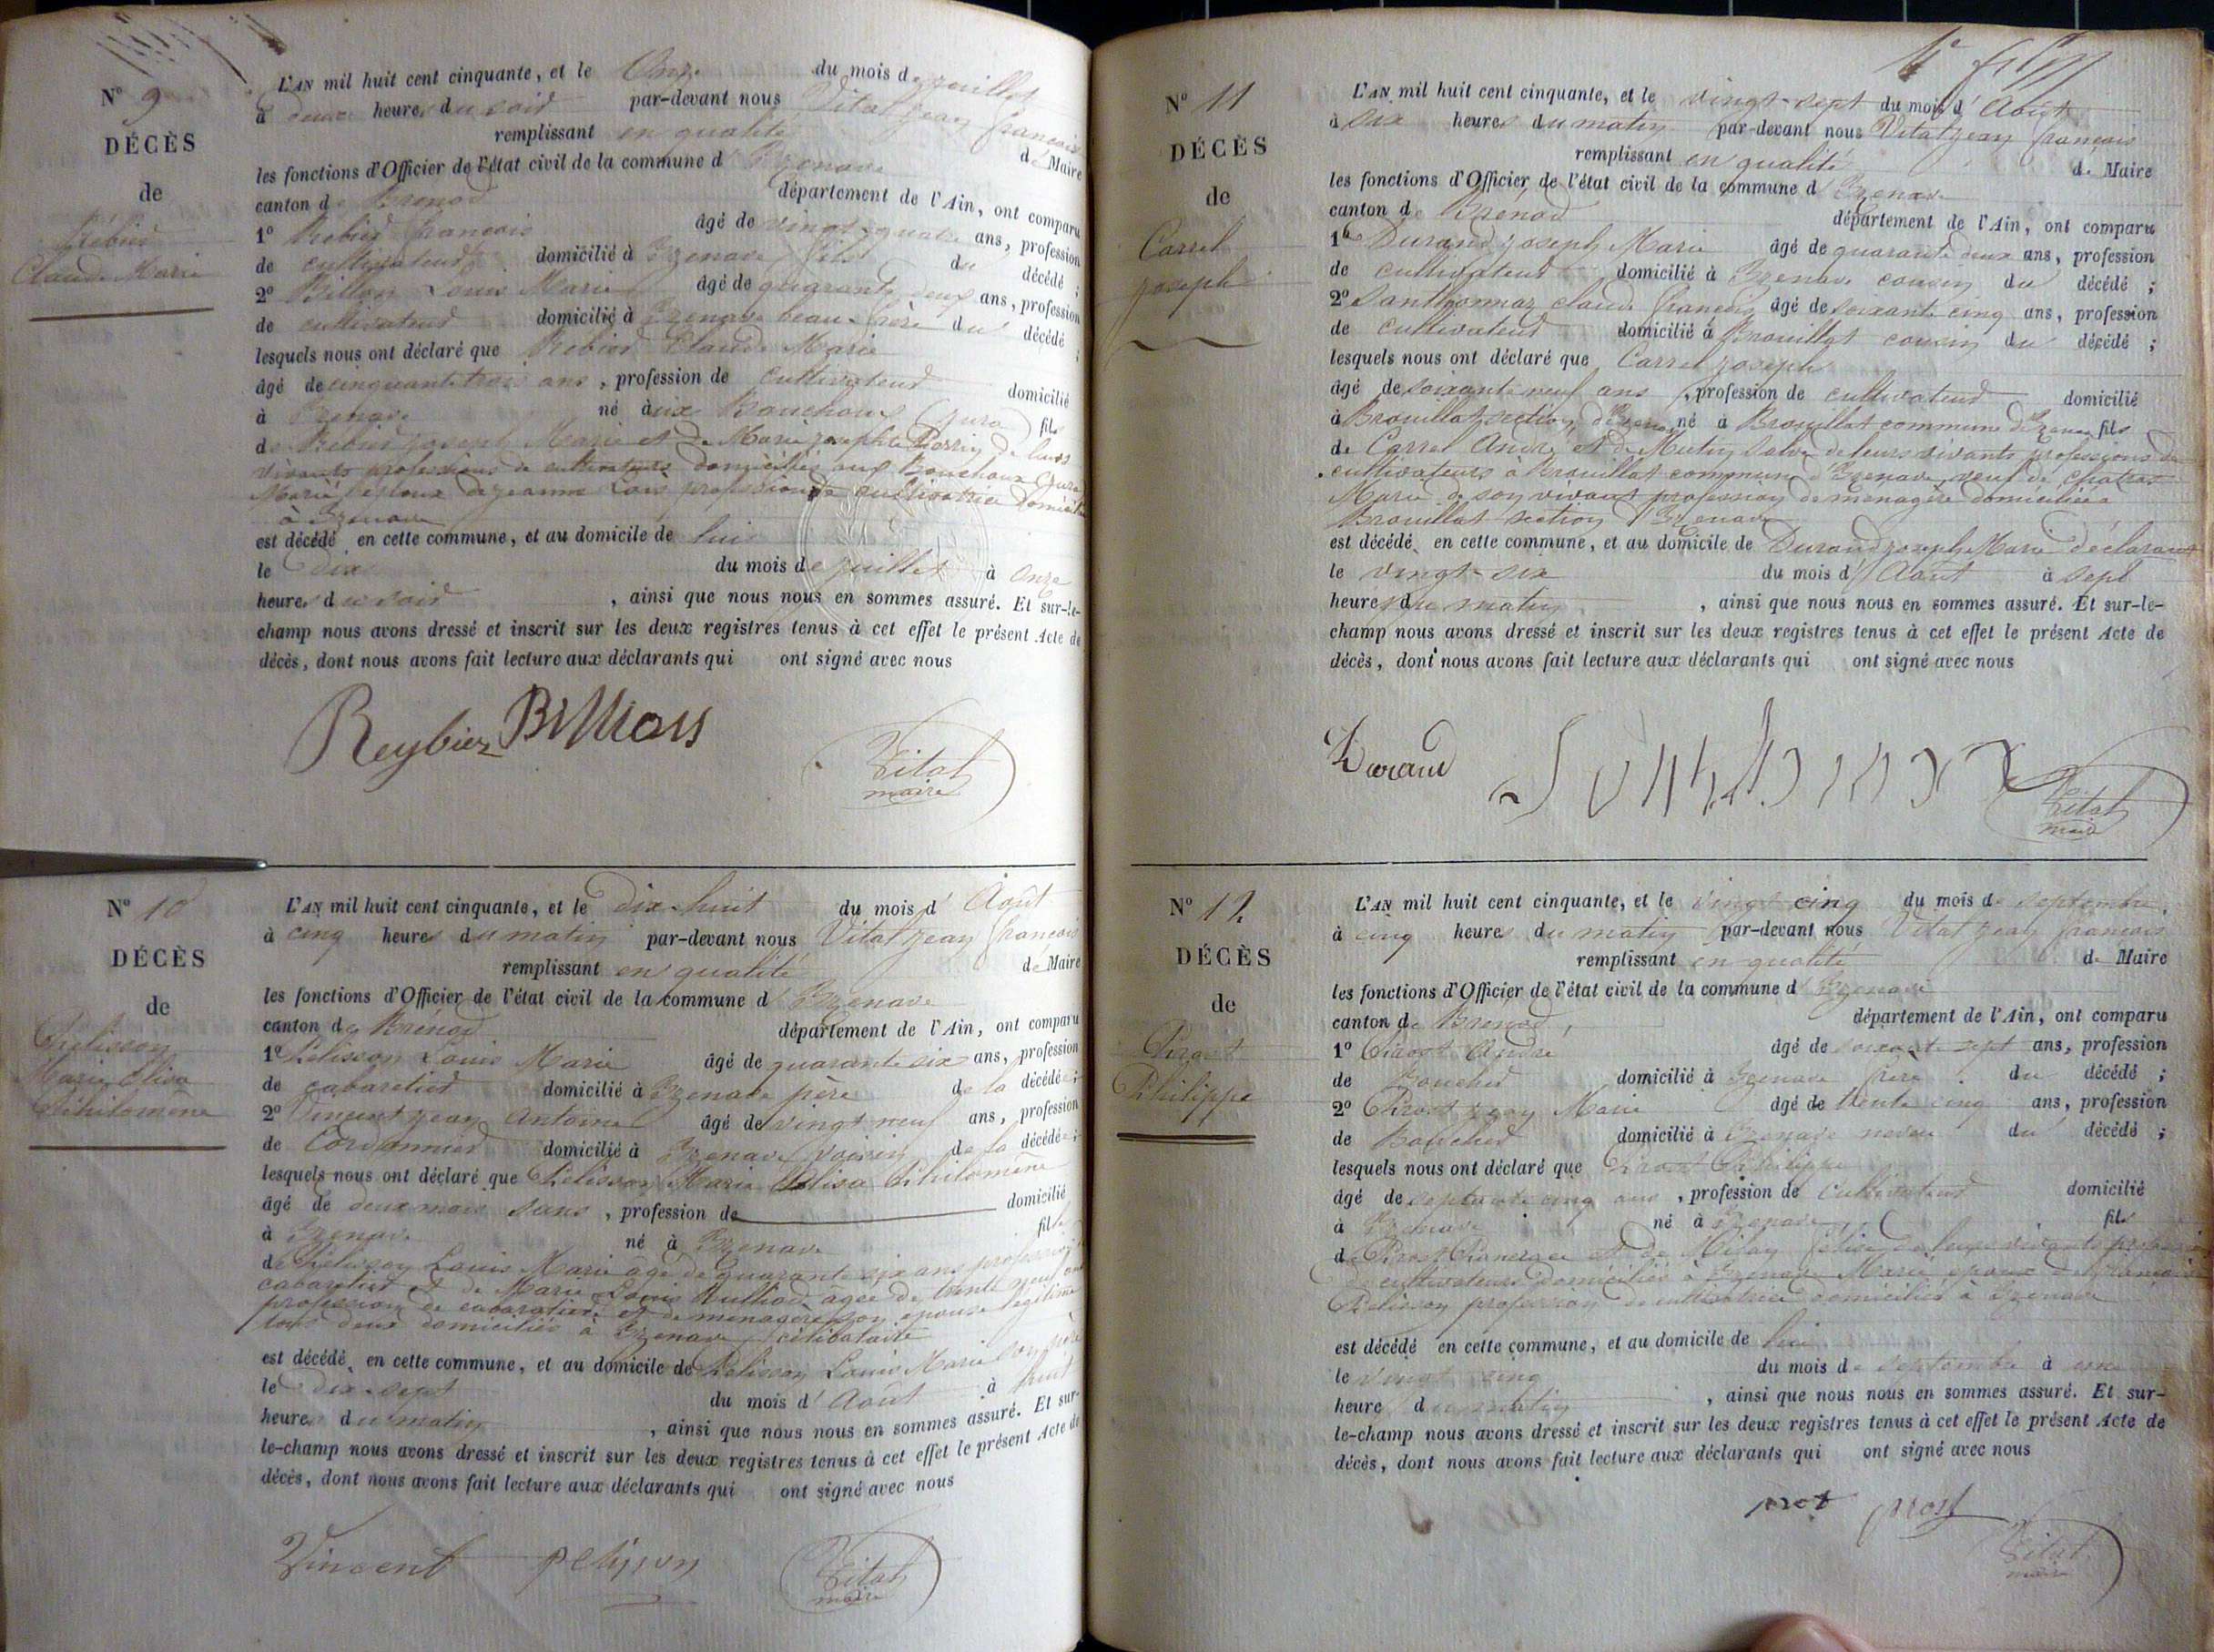 N° 9
DÉCÈS
de
Rebier
Claude Marie
L'AN mil huit cent cinquante, et le Onze du mois de juillet
à deux heures du soir par-devant nous Vital jean françois
remplissant en qualité de Maire
les fonctions d'Officier de l'état civil de la commune d'Izenave
canton de Brenod département de l'Ain, ont comparu
1° Rebier françois âgé de vingt-quatre ans, profession
de cultivateur domicilié à Izenave fils du décédé ;
2° Billon Louis Marie âgé de quarante deux ans, profession
de cultivateur domicilié à Izenave beau-frère du décédé ;
lesquels nous ont déclaré que Rebier Claude Marie
âgé de cinquante trois ans, profession de cultivateur domicilié
à Izenave né aux Bouchoux (jura) fils
de Rebier joseph Marie et de Marie josephte Perrin de leurs
vivants professions de cultivateurs domiciliés aux Bouchoux (jura)
Marié époux de jeanne profession de cultivatrice domiciliée
à Izenave
est décédé en cette commune, et au domicile de lui
le dix du mois de juillet à onze
heures du soir, ainsi que nous nous en sommes assuré. Et sur-le-
champ nous avons dressé et inscrit sur les deux registres tenus à cet effet le présent Acte de
décès, dont nous avons fait lecture aux déclarants qui ont signé avec nous
Reybier Billion
Vital
maire
N° 10
DÉCÈS
de
Pelisson
Marie Elisa
Philomène
L'AN mil huit cent cinquante, et le dix-huit du mois d'Août
à cinq heures du matin par-devant nous Vital jean françois
remplissant en qualité de Maire
les fonctions d'Officier de l'état civil de la commune d'Izenave
canton de Brénod département de l'Ain, ont comparu
1° Pelisson Louis Marie âgé de quarante six ans, profession
de cabaretier domicilié à Izenave père de la décédée ;
2° Vincent jean Antoine âgé de vingt neuf ans, profession
de Cordonnier domicilié à Izenave voisin de la décédée ;
lesquels nous ont déclaré que Pelisson Marie Elisa Philomène
âgé de deux mois sans, profession de domicilié
à Izenave né à Izenave fille
de Pelisson Louis Marie âgé de quarante six ans profession
cabaretier et de Marie Louise âgée de trente neuf ans
profession de cabaretier et de menagère son épouse légitime
tous deux domiciliés à Izenave célibataire
est décédé en cette commune, et au domicile de Pelisson Louis Marie son père
le dix-sept du mois d'Août à huit
heures du matin, ainsi que nous nous en sommes assuré. Et sur-
le-champ nous avons dressé et inscrit sur les deux registres tenus à cet effet le présent Acte de
décès, dont nous avons fait lecture aux déclarants qui ont signé avec nous
Vincent pelisson
Vital
maire
N° 11
DÉCÈS
de
Carrel
joseph
L'AN mil huit cent cinquante, et le vingt-sept du mois d'Août
à six heures du matin par-devant nous Vital jean françois
remplissant en qualité de Maire
les fonctions d'Officier de l'état civil de la commune d'Izenave
canton de Brénod département de l'Ain, ont comparu
1° Durand joseph Marie âgé de quarante deux ans, profession
de cultivateur domicilié à Izenave cousin du décédé ;
2° Santhonnax claude françois âgé de soixante cinq ans, profession
de cultivateur domicilié à Brouillat cousin du décédé ;
lesquels nous ont déclaré que Carrel joseph
âgé de soixante neuf ans, profession de cultivateur domicilié
à Brouillat section d'Izenave né à Brouillat commune d'Izenave fils
de Carrel André et de de leurs vivants professions de
cultivateurs à Brouillat commune d'Izenave, veuf de
Marie de son vivant profession de menagère domiciliée à
Brouillat section d'Izenave
est décédé en cette commune, et au domicile de Durand joseph Marie déclarant
le vingt-six du mois d'Août à sept
heures du matin, ainsi que nous nous en sommes assuré. Et sur-le-
champ nous avons dressé et inscrit sur les deux registres tenus à cet effet le présent Acte de
décès, dont nous avons fait lecture aux déclarants qui ont signé avec nous
Durand
Vital
maire
N° 12
DÉCÈS
de
Prost
Philippe
L'AN mil huit cent cinquante, et le vingt cinq du mois de septembre
à cinq heures du matin par-devant nous Vital jean françois
remplissant en qualité de Maire
les fonctions d'Officier de l'état civil de la commune d'Izenave
canton de Brenod, département de l'Ain, ont comparu
1° Prost André âgé de soixante sept ans, profession
de Boucher domicilié à Izenave frère du décédé ;
2° Prost jean Marie âgé de trente cinq ans, profession
de Boucher domicilié à Izenave neveu du décédé ;
lesquels nous ont déclaré que Prost Philippe
âgé de septante cinq ans, profession de Cultivateur domicilié
à Izenave né à Izenave fils
de Prost et de de leurs vivants profession
de cultivateurs domiciliés à Izenave Marié époux de françoise
Pelisson profession de cultivatrice domiciliée à Izenave
est décédé en cette commune, et au domicile de lui
le vingt cinq du mois de septembre à une
heure du matin, ainsi que nous nous en sommes assuré. Et sur-
le-champ nous avons dressé et inscrit sur les deux registres tenus à cet effet le présent Acte de
décès, dont nous avons fait lecture aux déclarants qui ont signé avec nous
prost prost
Vital
maire